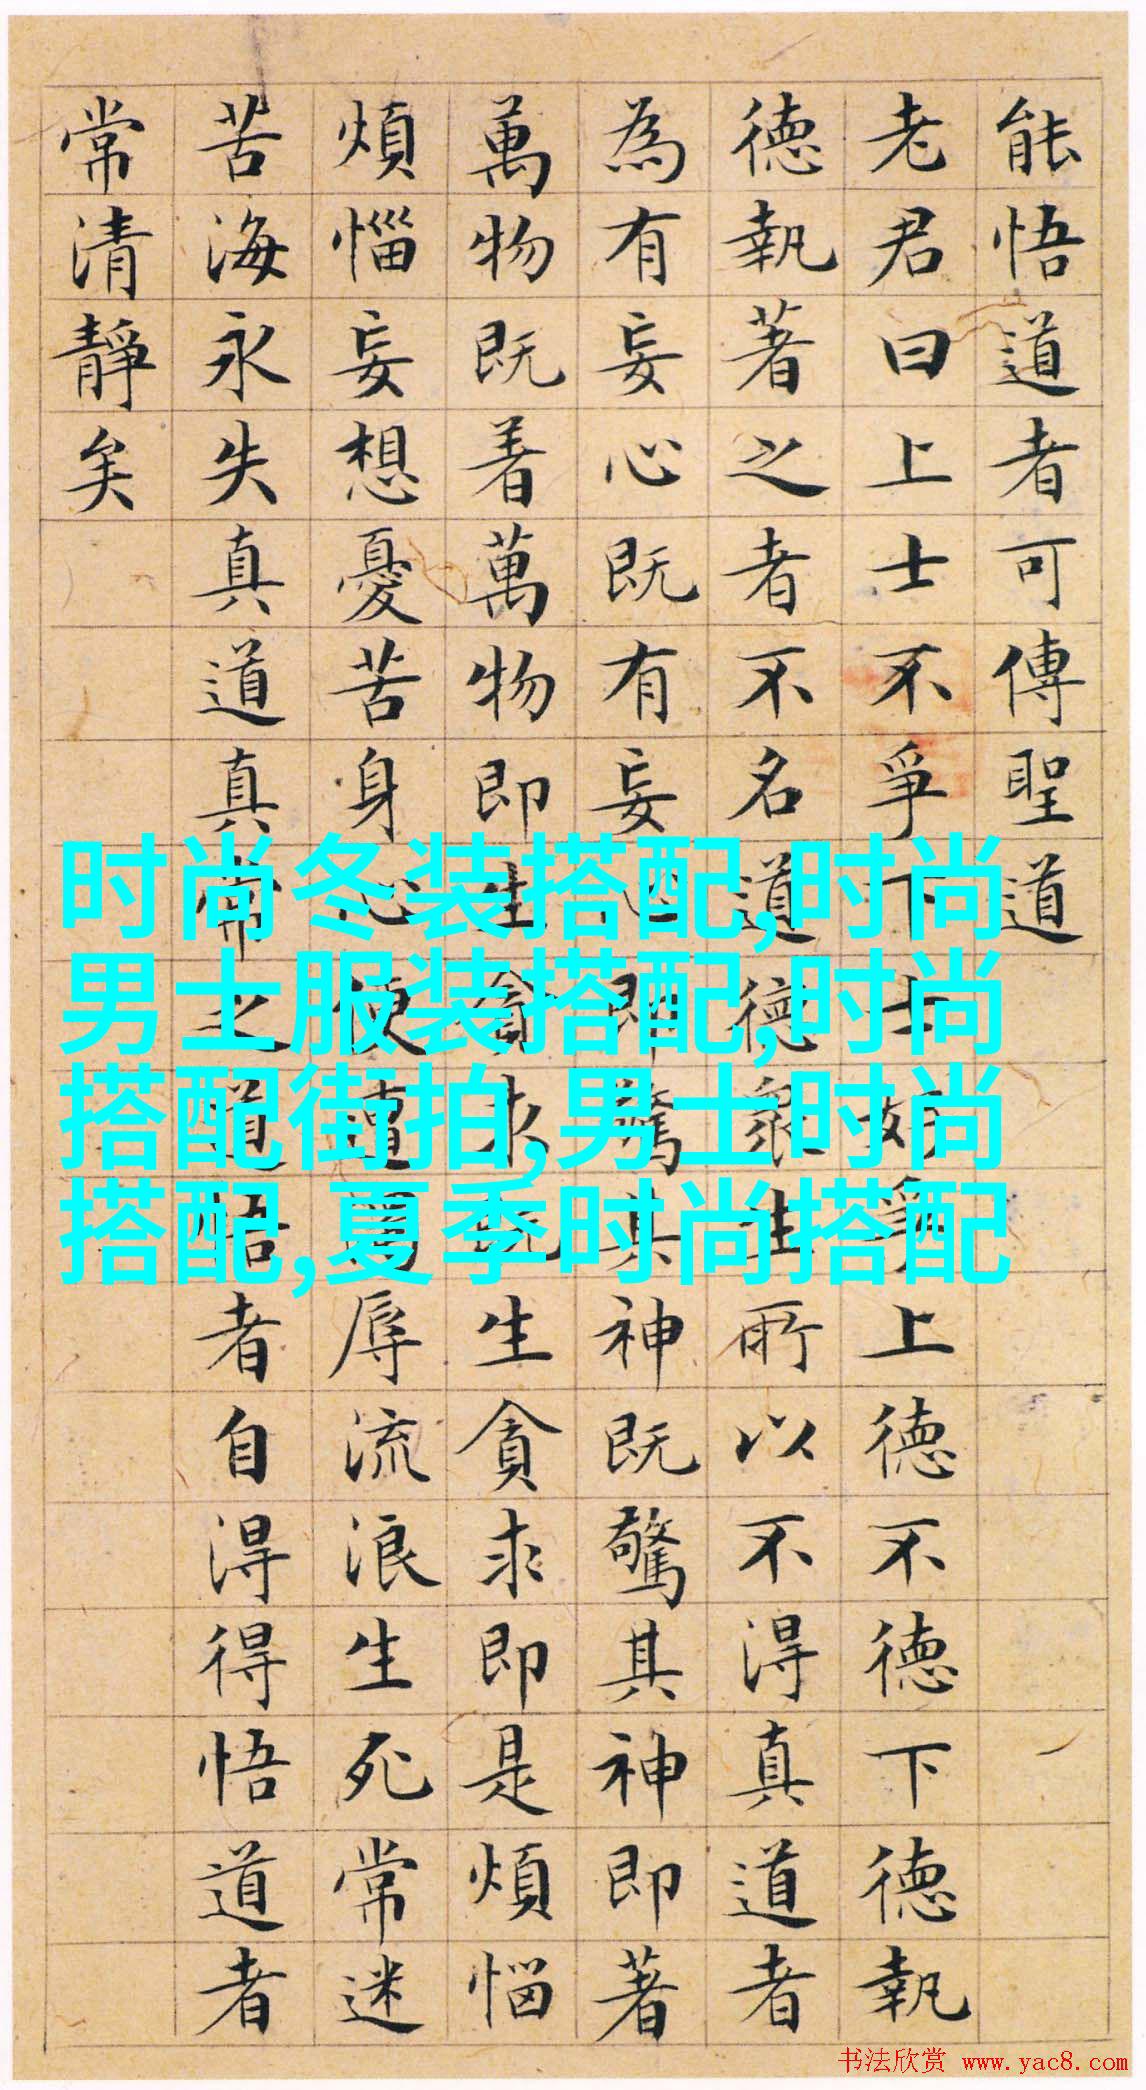 能悟道者可傳聖道
老君曰上士不爭下士好爭上德不德下德執
德執著之者不名道德衆生所以不得真道者
為有妄心既有妄心即驚其神既驚其神即著
萬物既着萬物即生貪求既生貪求即是煩惱
煩惱妄想憂苦身心便遭濁辱流浪生死常迷
苦海永失真道真常之道悟者自得得悟道者
常清靜矣
时尚冬装搭配,时尚
男士服装搭配,时尚
搭配街拍,男士时尚
搭配,夏季时尚搭配
书法欣赏 www.yac8.com